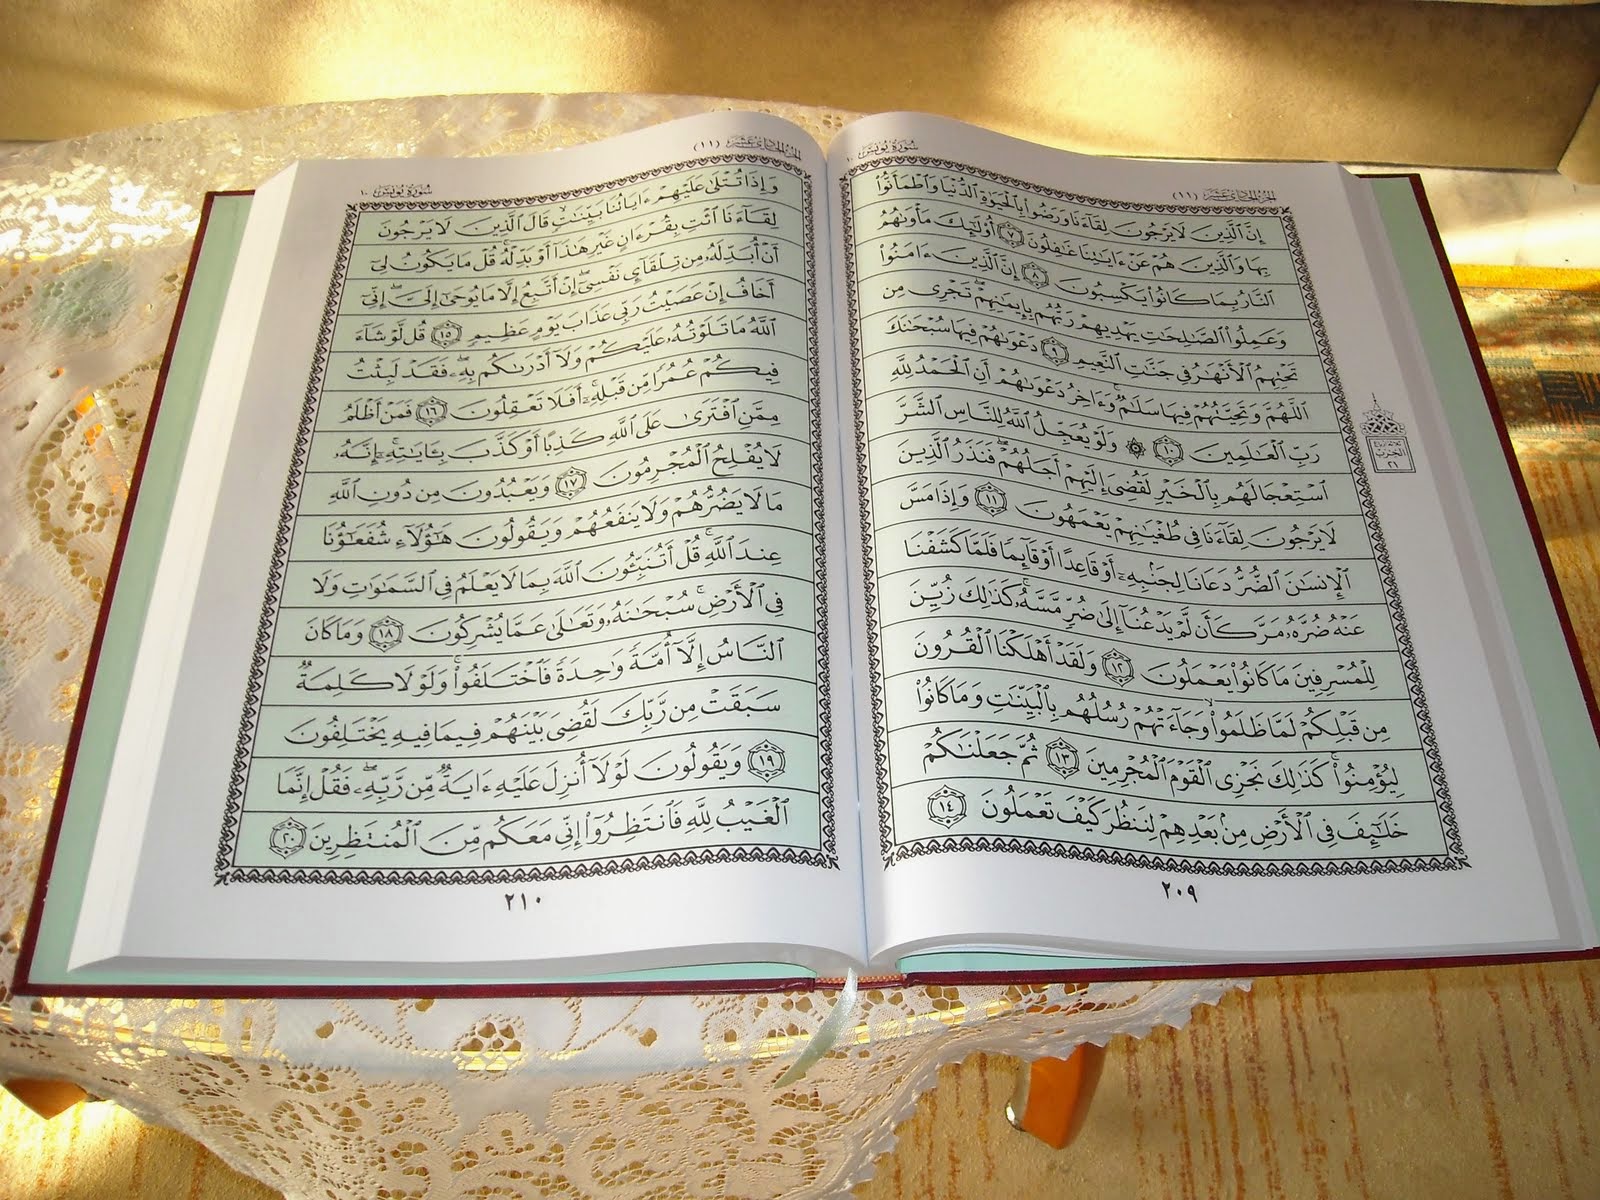 سورة يونس ١٠
الجزء الحادي عشر (١١)
إِنَّ ٱلَّذِينَ لَا يَرْجُونَ لِقَآءَنَا وَرَضُوا۟ بِٱلْحَيَوٰةِ ٱلدُّنْيَا وَٱطْمَأَنُّوا۟
بِهَا وَٱلَّذِينَ هُمْ عَنْ ءَايَٰتِنَا غَٰفِلُونَ ٧ أُو۟لَٰٓئِكَ مَأْوَىٰهُمُ
ٱلنَّارُ بِمَا كَانُوا۟ يَكْسِبُونَ ٨ إِنَّ ٱلَّذِينَ ءَامَنُوا۟
وَعَمِلُوا۟ ٱلصَّٰلِحَٰتِ يَهْدِيهِمْ رَبُّهُم بِإِيمَٰنِهِمْ ۖ تَجْرِى مِن
تَحْتِهِمُ ٱلْأَنْهَٰرُ فِى جَنَّٰتِ ٱلنَّعِيمِ ٩ دَعْوَىٰهُمْ فِيهَا سُبْحَٰنَكَ
ٱللَّهُمَّ وَتَحِيَّتُهُمْ فِيهَا سَلَٰمٌ ۚ وَءَاخِرُ دَعْوَىٰهُمْ أَنِ ٱلْحَمْدُ لِلَّهِ
رَبِّ ٱلْعَٰلَمِينَ ١٠ ۞ وَلَوْ يُعَجِّلُ ٱللَّهُ لِلنَّاسِ ٱلشَّرَّ
ٱسْتِعْجَالَهُم بِٱلْخَيْرِ لَقُضِىَ إِلَيْهِمْ أَجَلُهُمْ ۖ فَنَذَرُ ٱلَّذِينَ
لَا يَرْجُونَ لِقَآءَنَا فِى طُغْيَٰنِهِمْ يَعْمَهُونَ ١١ وَإِذَا مَسَّ
ٱلْإِنسَٰنَ ٱلضُّرُّ دَعَانَا لِجَنۢبِهِۦٓ أَوْ قَاعِدًا أَوْ قَآئِمًا فَلَمَّا كَشَفْنَا
عَنْهُ ضُرَّهُۥ مَرَّ كَأَن لَّمْ يَدْعُنَآ إِلَىٰ ضُرٍّ مَّسَّهُۥ ۚ كَذَٰلِكَ زُيِّنَ
لِلْمُسْرِفِينَ مَا كَانُوا۟ يَعْمَلُونَ ١٢ وَلَقَدْ أَهْلَكْنَا ٱلْقُرُونَ
مِن قَبْلِكُمْ لَمَّا ظَلَمُوا۟ ۙ وَجَآءَتْهُمْ رُسُلُهُم بِٱلْبَيِّنَٰتِ وَمَا كَانُوا۟
لِيُؤْمِنُوا۟ ۚ كَذَٰلِكَ نَجْزِى ٱلْقَوْمَ ٱلْمُجْرِمِينَ ١٣ ثُمَّ جَعَلْنَٰكُمْ
خَلَٰٓئِفَ فِى ٱلْأَرْضِ مِنۢ بَعْدِهِمْ لِنَنظُرَ كَيْفَ تَعْمَلُونَ ١٤
٢٠٩
الحزب
٢١
الجزء الحادي عشر (١١)
سورة يونس ١٠
وَإِذَا تُتْلَىٰ عَلَيْهِمْ ءَايَاتُنَا بَيِّنَٰتٍ ۙ قَالَ ٱلَّذِينَ لَا يَرْجُونَ
لِقَآءَنَا ٱئْتِ بِقُرْءَانٍ غَيْرِ هَٰذَآ أَوْ بَدِّلْهُ ۚ قُلْ مَا يَكُونُ لِىٓ
أَنْ أُبَدِّلَهُۥ مِن تِلْقَآئِ نَفْسِىٓ ۖ إِنْ أَتَّبِعُ إِلَّا مَا يُوحَىٰٓ إِلَىَّ ۖ إِنِّىٓ
أَخَافُ إِنْ عَصَيْتُ رَبِّى عَذَابَ يَوْمٍ عَظِيمٍ ١٥ قُل لَّوْ شَآءَ
ٱللَّهُ مَا تَلَوْتُهُۥ عَلَيْكُمْ وَلَآ أَدْرَىٰكُم بِهِۦ ۖ فَقَدْ لَبِثْتُ
فِيكُمْ عُمُرًا مِّن قَبْلِهِۦٓ ۚ أَفَلَا تَعْقِلُونَ ١٦ فَمَنْ أَظْلَمُ
مِمَّنِ ٱفْتَرَىٰ عَلَى ٱللَّهِ كَذِبًا أَوْ كَذَّبَ بِـَٔايَٰتِهِۦٓ ۚ إِنَّهُۥ
لَا يُفْلِحُ ٱلْمُجْرِمُونَ ١٧ وَيَعْبُدُونَ مِن دُونِ ٱللَّهِ
مَا لَا يَضُرُّهُمْ وَلَا يَنفَعُهُمْ وَيَقُولُونَ هَٰٓؤُلَآءِ شُفَعَٰٓؤُنَا
عِندَ ٱللَّهِ ۚ قُلْ أَتُنَبِّـُٔونَ ٱللَّهَ بِمَا لَا يَعْلَمُ فِى ٱلسَّمَٰوَٰتِ وَلَا
فِى ٱلْأَرْضِ ۚ سُبْحَٰنَهُۥ وَتَعَٰلَىٰ عَمَّا يُشْرِكُونَ ١٨ وَمَا كَانَ
ٱلنَّاسُ إِلَّآ أُمَّةً وَٰحِدَةً فَٱخْتَلَفُوا۟ ۚ وَلَوْلَا كَلِمَةٌ
سَبَقَتْ مِن رَّبِّكَ لَقُضِىَ بَيْنَهُمْ فِيمَا فِيهِ يَخْتَلِفُونَ
١٩ وَيَقُولُونَ لَوْلَآ أُنزِلَ عَلَيْهِ ءَايَةٌ مِّن رَّبِّهِۦ ۖ فَقُلْ إِنَّمَا
ٱلْغَيْبُ لِلَّهِ فَٱنتَظِرُوٓا۟ إِنِّى مَعَكُم مِّنَ ٱلْمُنتَظِرِينَ ٢٠
٢١٠